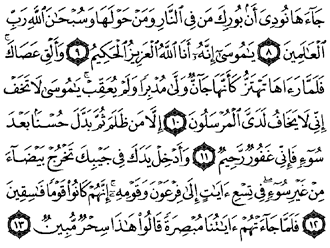 جَآءَهَا نُودِىَ أَنۢ بُورِكَ مَن فِى ٱلنَّارِ وَمَنْ حَوْلَهَا وَسُبْحَـٰنَ ٱللَّهِ رَبِّ
ٱلْعَـٰلَمِينَ ٨ يَـٰمُوسَىٰٓ إِنَّهُۥٓ أَنَا ٱللَّهُ ٱلْعَزِيزُ ٱلْحَكِيمُ ٩ وَأَلْقِ عَصَاكَ ۚ
فَلَمَّا رَءَاهَا تَهْتَزُّ كَأَنَّهَا جَآنٌّ وَلَّىٰ مُدْبِرًا وَلَمْ يُعَقِّبْ ۚ يَـٰمُوسَىٰ لَا تَخَفْ
إِنِّى لَا يَخَافُ لَدَىَّ ٱلْمُرْسَلُونَ ١٠ إِلَّا مَن ظَلَمَ ثُمَّ بَدَّلَ حُسْنًۢا بَعْدَ
سُوٓءٍ فَإِنِّى غَفُورٌ رَّحِيمٌ ١١ وَأَدْخِلْ يَدَكَ فِى جَيْبِكَ تَخْرُجْ بَيْضَآءَ
مِنْ غَيْرِ سُوٓءٍ ۖ فِى تِسْعِ ءَايَـٰتٍ إِلَىٰ فِرْعَوْنَ وَقَوْمِهِۦٓ ۚ إِنَّهُمْ كَانُوا۟ قَوْمًا فَـٰسِقِينَ
١٢ فَلَمَّا جَآءَتْهُمْ ءَايَـٰتُنَا مُبْصِرَةً قَالُوا۟ هَـٰذَا سِحْرٌ مُّبِينٌ ١٣